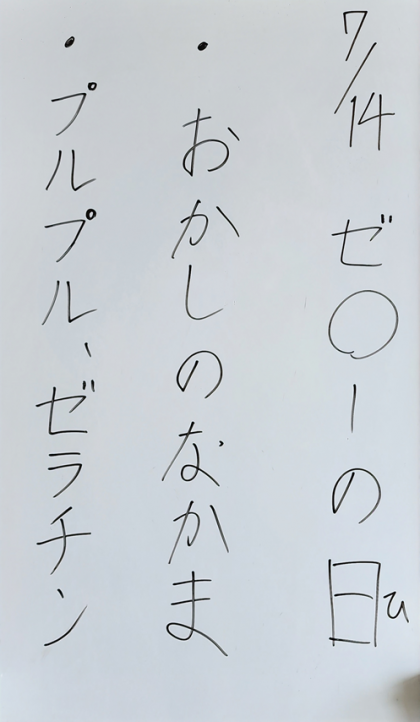 7/14 ゼ〇ーの日ひ
・おかしのなかま
・プルプル、ゼラチン